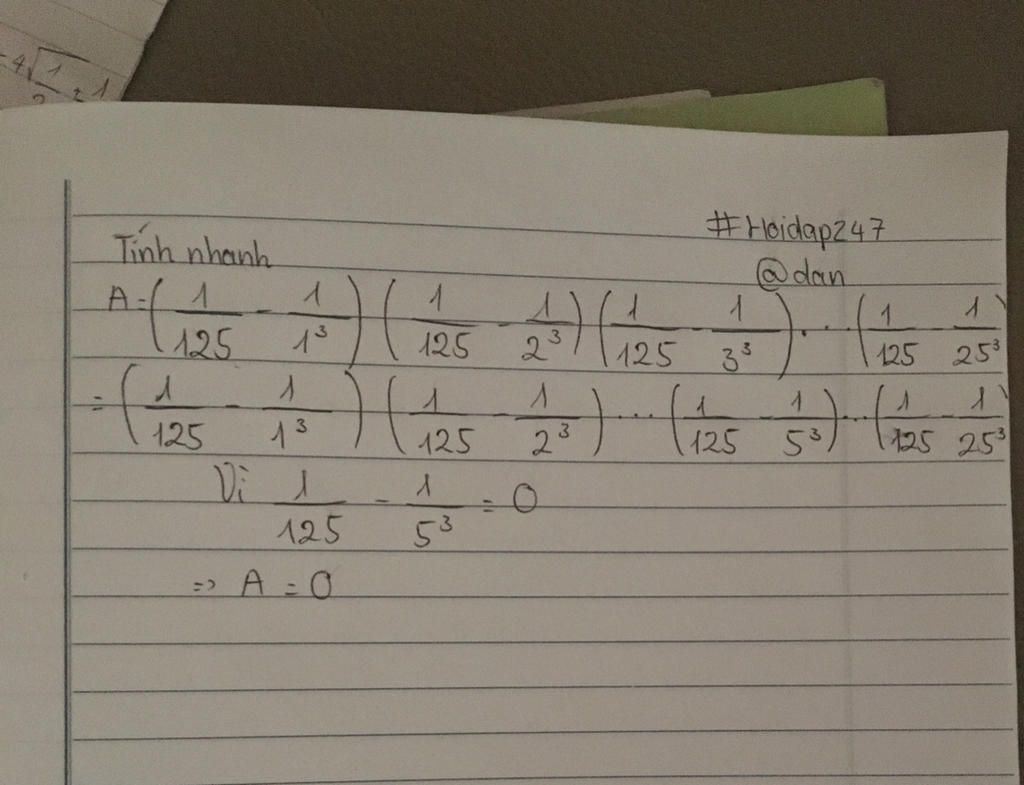 -4√1/2 + 1
#Hoidap247
Tính nhanh
@dan
A = (1/125 - 1/1³) (1/125 - 1/2³) (1/125 - 1/3³) ... (1/125 - 1/25³)
= (1/125 - 1/1³) (1/125 - 1/2³) ... (1/125 - 1/5³) ... (1/125 - 1/25³)
Vì 1/125 - 1/5³ = 0
=> A = 0